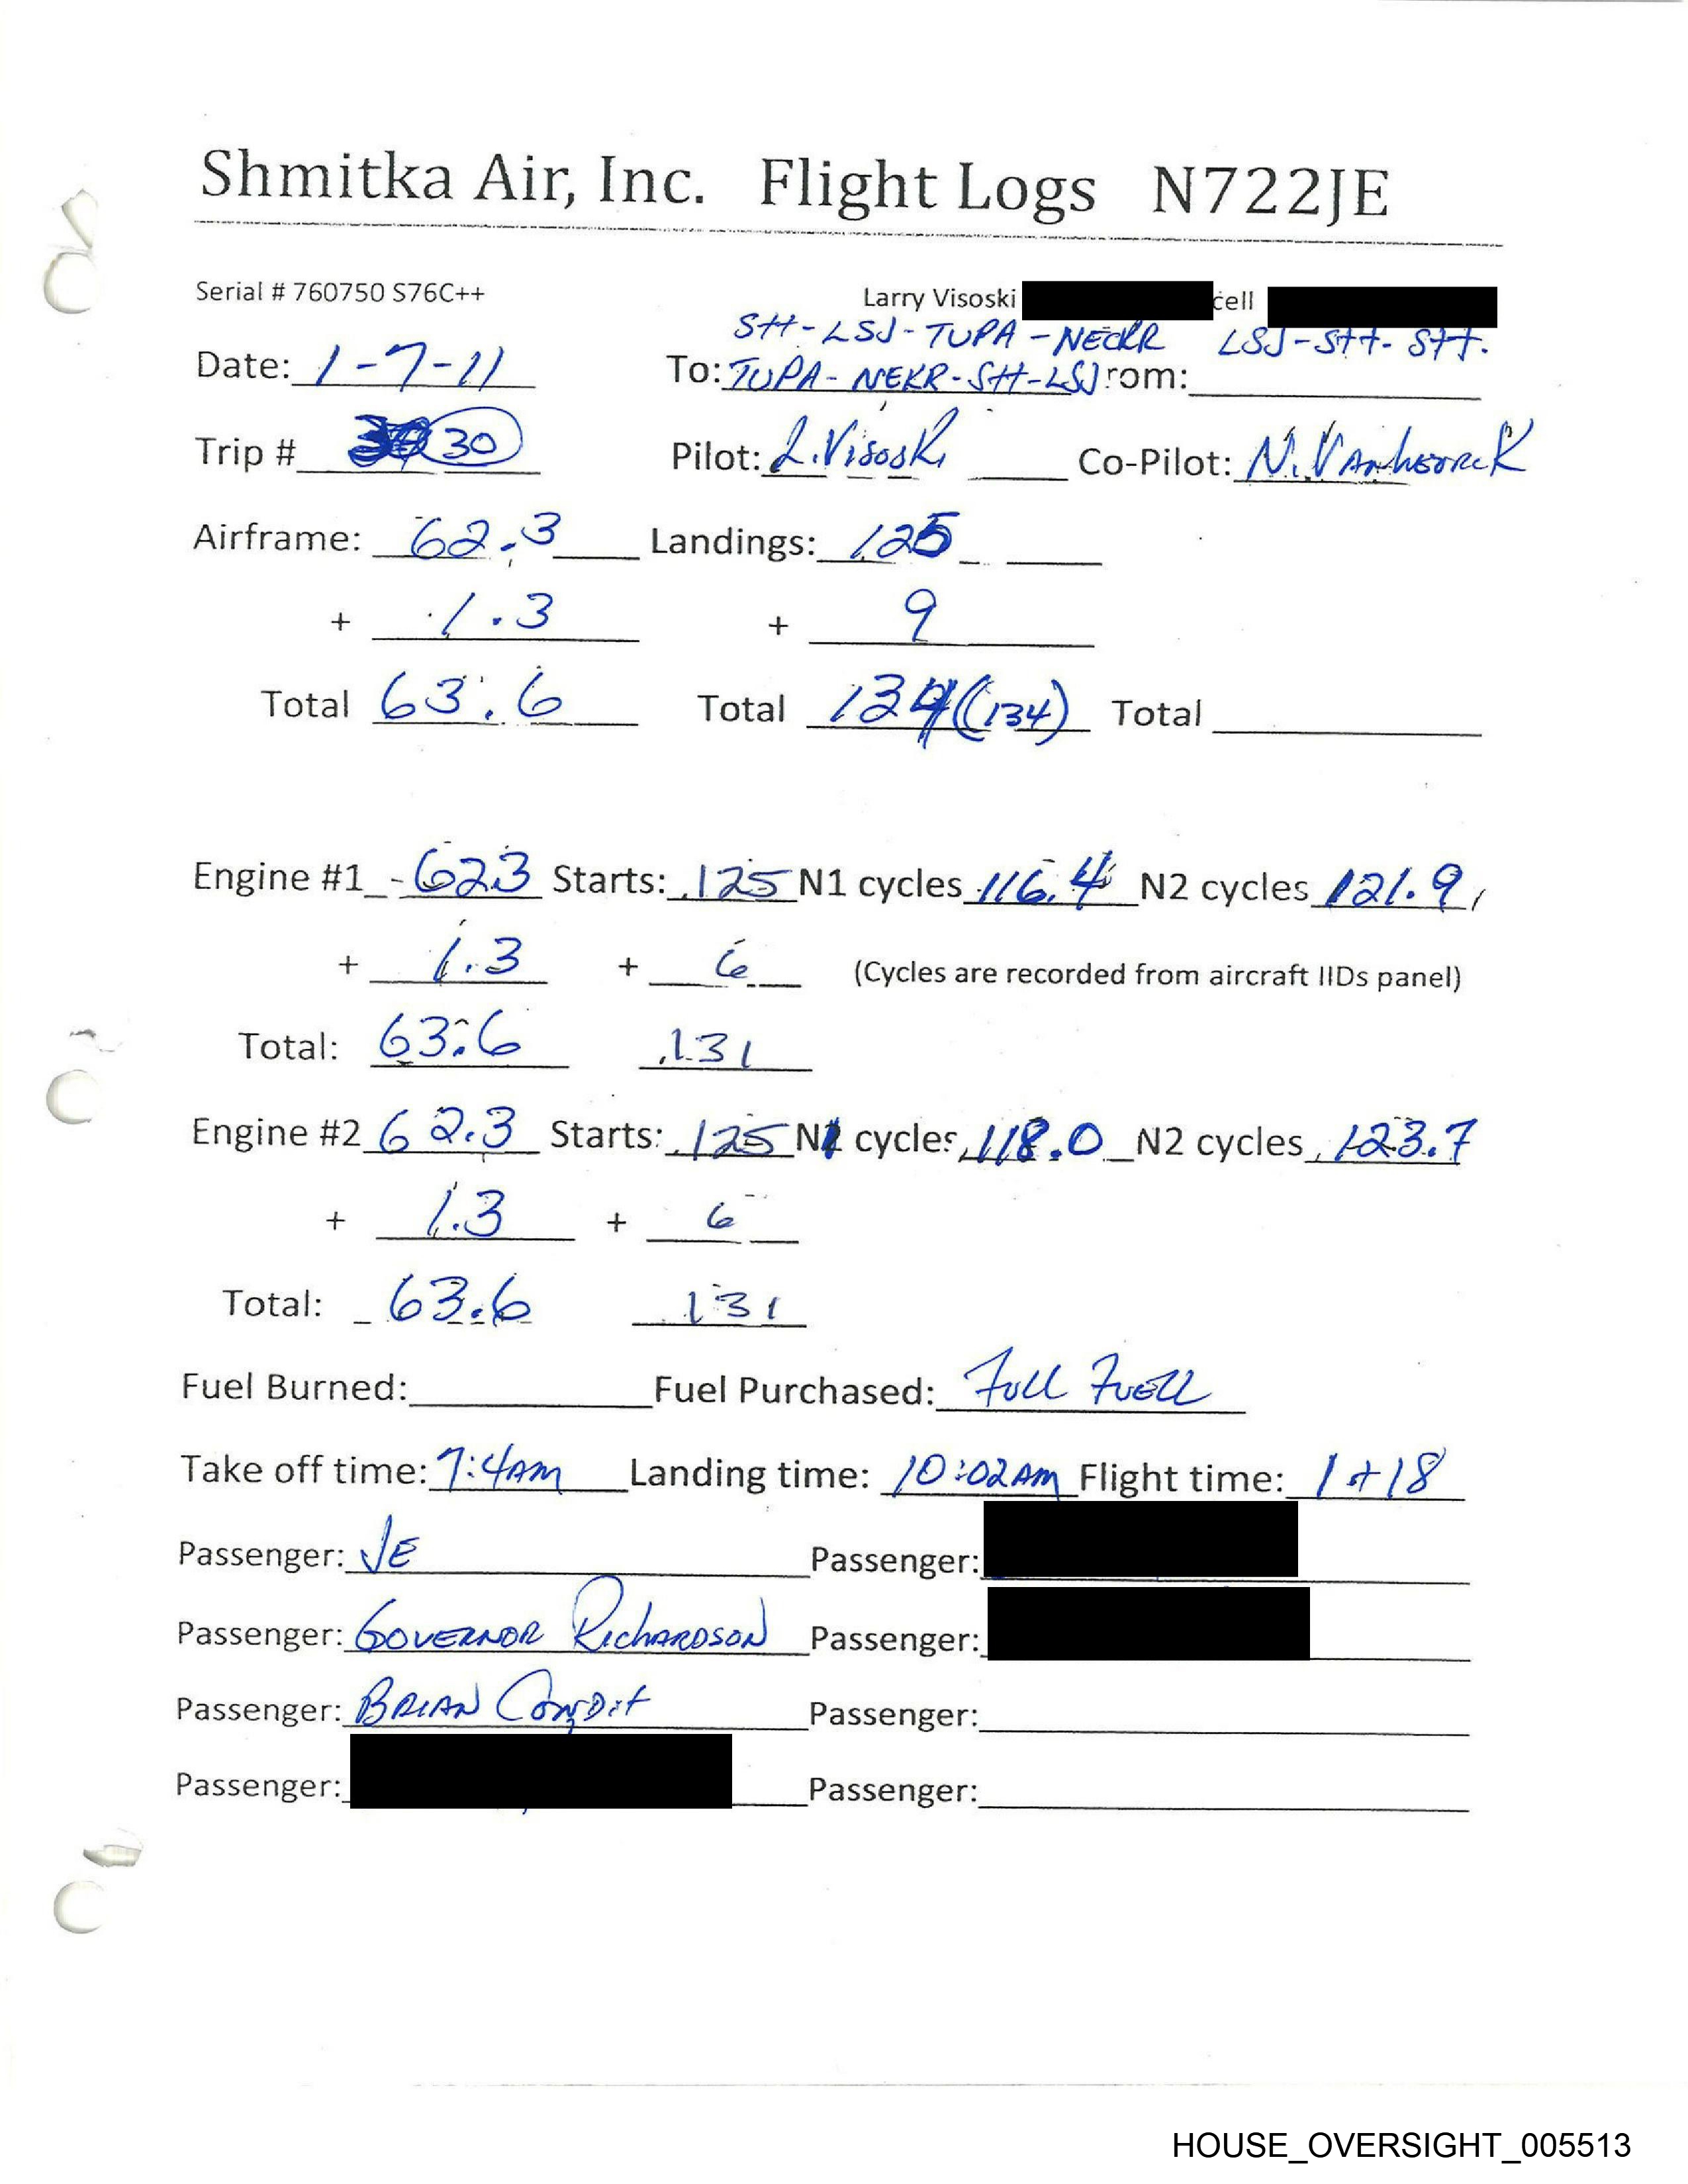 Shmitka Air, Inc. Flight Logs N722JE
Serial # 760750 S76C++ Larry Visoski cell
STT-LSJ-TUPA-NECKR LSJ-STT-STT.
Date: 1-7-11 To: TUPA-NEKR-STT-LSJ rom:
Trip # 30 Pilot: L.Visoski Co-Pilot: N.
Airframe: 62.3 Landings: 125
+ 1.3 + 9
Total 63.6 Total 134 (134) Total
Engine #1 623 Starts: 125 N1 cycles 116.4 N2 cycles 121.9
+ 1.3 + 6 (Cycles are recorded from aircraft IIDs panel)
Total: 63.6 131
Engine #2 62.3 Starts: 125 N1 cycles 118.0 N2 cycles 123.7
+ 1.3 + 6
Total: 63.6 131
Fuel Burned: Fuel Purchased: Full Fuell
Take off time: 7:4AM Landing time: 10:02AM Flight time: 1+18
Passenger: JE Passenger:
Passenger: GOVERNOR RichARDSON Passenger:
Passenger: BRIAN Condit Passenger:
Passenger: Passenger:
HOUSE_OVERSIGHT_005513